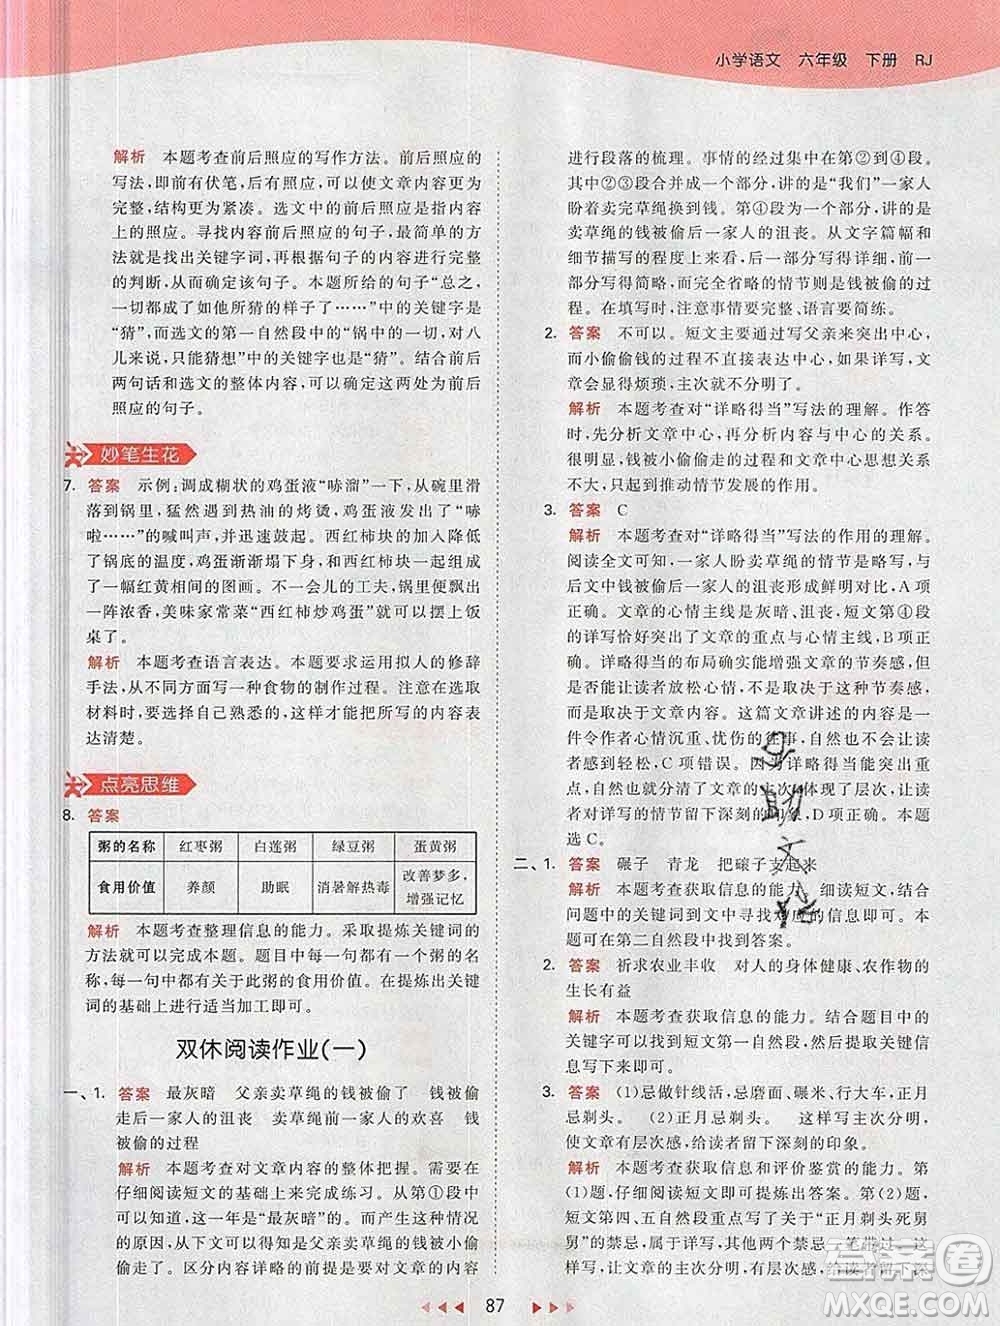 小学语文 六年级 下册 RJ
解析 本题考查前后照应的写作方法。前后照应的
写法,即前有伏笔,后有照应,可以使文章内容更为
完整,结构更为紧凑。选文中的前后照应是内容
上的照应。寻找内容前后照应的句子,最简单的方
法就是找出关键字词,再根据句子内容进行完整
的判断,从而确定该句子。本题所给的句子“总之,
一切都成了他所猜的样子了……”中的关键字是
“猜”,而选文的第一自然段中的“锅中的一切,对八
儿来说,只能猜想”中的关键字也是“猜”。结合前后
两句话和选文的整体内容,能确定这两处为前后
照应的句子。
妙笔生花
7. 答案 示例:调成糊状的鸡蛋液“哧溜”一下,从碗里滑
到锅里,猛然遇到热油的烤烫,鸡蛋液发出了“哧
啦……”的喊叫声,并迅速鼓起。西红柿块的加入降低
了锅底的温度,鸡蛋渐渐塌下身子,与西红柿块组合成
了一幅红黄相间的图画。不一会儿的工夫,锅里便飘出
一阵浓香,美味家常菜“西红柿炒鸡蛋”就可以摆上饭
桌了。
解析 本题考查语言表达。本题要求运用拟人的修辞
手法,来描写一种食物的制作过程。我们在选取
材料时,要选择自己熟悉的,这样才能把所写的内容表
达清楚。
点亮思维
8. 答案
粥的名称 红枣粥 白莲粥 绿豆粥 蛋黄粥
食用价值 养颜 助眠 消暑解热毒 改善梦多,增强记忆
解析 本题考查整理信息的能力。采取提炼关键词的
方法就可以完成本题。题目中每一句都有一个粥的名
称,每一句中都有关于此粥的食用价值。在提炼出关键
词的基础上进行适当加工即可。
双休阅读作业(一)
一、1. 答案 最灰暗 父亲卖草绳的钱被偷了 钱被偷
走后一家人的沮丧 卖草绳前一家人的欢喜 钱
被偷的过程
解析 本题考查对文章内容的整体把握。需要在
仔细阅读短文的基础上来完成练习。从第①段中
可以知道,这一年是“最灰暗”的。而产生这种情况
的原因,由下文可知是父亲卖草绳的钱被小偷偷
走了。区分内容详略是根据事情发展的经过,
进行段落的梳理。事情的经过集中在第②至④段。
其中②③段合并成一个部分,讲的是“我们”一家人
盼着卖完草绳换到钱。第④段为一个部分,讲的是
卖草绳的钱被偷后一家人的沮丧。从文字篇幅和
细节描写的程度上来看,后一部分写得详细,前一
部分写得简略,而完全省略的情节则是钱被偷的过
程。在填写时,注意事情要完整、语言要简练。
2. 答案 不可以。短文主要通过写父亲来突出中心,
而小偷偷钱的过程不直接表达中心,如果详写,文
章会显得烦琐,主次就不分明了。
解析 本题考查对“详略得当”写法的理解。作答
时,先分析文章中心,再与题目中的内容相联系。
很明显,钱被小偷偷走的过程和文章中心思想关系
不大,只起到推动情节发展的作用。
3. 答案 C
解析 本题考查对“详略得当”写法的作用的理解。
阅读全文可知,一家人盼卖草绳的是略写,与
后文中钱被偷后一家人的沮丧形成鲜明对比,A项
正确。文章的心情主线是灰暗、沮丧,短文第④段
的详写恰好突出了文章的重点与心情主线,B项正
确。详略得当的布局确实能增强文章的节奏感,但
是否能让读者放松心情,不是取决于这种节奏感,
而是取决于文章内容。这篇文章讲述的内容是一
件令作者心情沉重、忧伤的往事,自然不能让读者
感到轻松,C项错误。因为对于文章重点内容的突
出,自然也就分清了文章的主次,体现了层次,让读
者对详写的情节留下深刻的印象,D项正确。本题
选C。
二、1. 答案 碾子 青龙 把磙子支起来
解析 本题考查获取信息的能力。细读短文,结合
问题中的关键词到文中寻找对应的信息即可。本
题可在第二自然段中找到答案。
2. 答案 祈求农业丰收 对人的身体健康、农作物的
生长有益
解析 本题考查获取信息的能力。结合题中的关
键信息,再到文中寻找与之相关的信息,将找到的
信息写下来即可。
3. 答案 (1)忌做针线活,忌磨面、碾米、行大车,正月
忌剃头。 (2)正月忌剃头。 这样写主次分明,
文章有层次感,给读者留下深刻的印象。
解析 本题考查获取信息和评价鉴赏的能力。第
(1)题,仔细阅读短文即可提炼出答案。第(2)题,
短文第四、五自然段重点写了关于“正月剃头死舅
舅”的内容,属于详写,其他几个方面一笔带过,
这样写,让文章的主次分明,有层次感,给读者留下
87
答案圈
MXQE.COM